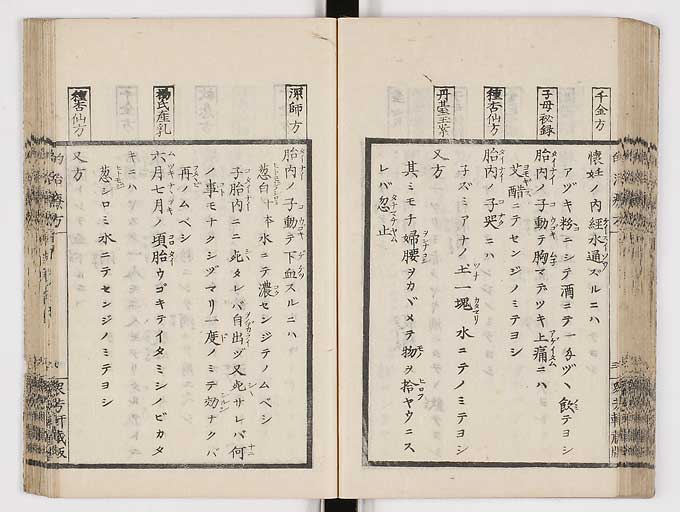 千金方
懷妊ノ内經水通ズルニハ
アヅキ粉ニシテ酒ニテ一匁ヅヽ飲テヨシ
子母秘録
胎内ノ子動テ胸マデツキ上痛ニハ
艾醋ニテセンジノミテヨシ
種杏仙方
胎内ノ子哭ニハ
子ズミアナノ土一塊水ニテノミテヨシ
丹臺玉案
又方
其ミモチ婦腰ヲカヾメテ物ヲ拾ヤウニス
レバ忽止
深師方
胎内ノ子動テ下血スルニハ
葱白十本水ニテ濃センジテノムベシ
子胎内ニ死タレバ自出ヅ又死サレバ何
ノ事モナクシヅマリ一度ノミテ効ナクバ
再ノムベシ
楊氏産乳
六月七月ノ頃胎ウゴキテイタミシノビカタ
キニハ
種杏仙方
又方
葱シロミ水ニテセンジノミテヨシ
的治療方